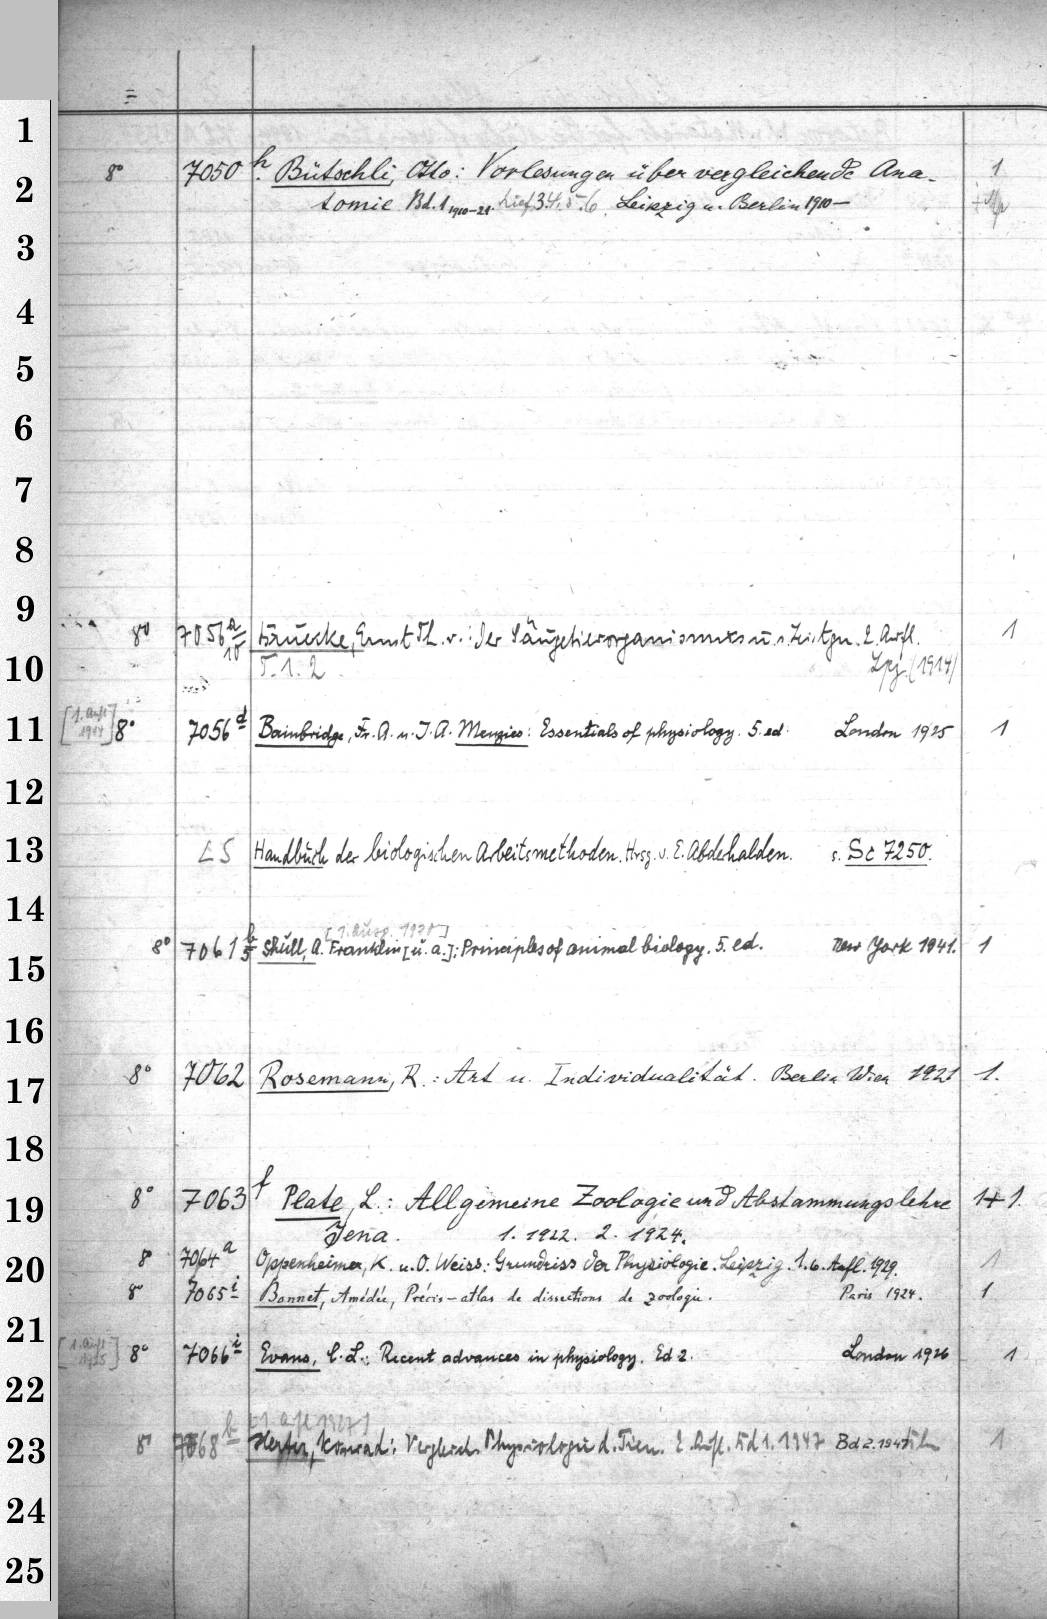 =
1
8° 7050 h. Bütschli, Otto: Vorlesungen über vergleichende Ana- 1
2
tomie Bd. 1 1910-21. Lief. 3.4.5.6. Leipzig u. Berlin 1910—
3
4
5
6
7
8
9
8° 7056 a/10 Bruecke, Ernst Th. v.: Der Säugetierorganismus u. s. Leistgn. 2. Aufl. 1
10
T. 1. 2 Lpz. (1914)
[1. Aufl 1914]
11
8° 7056 d Bainbridge, Fr. A. u. J. A. Menzies: Essentials of physiology. 5. ed. London 1925 1
12
13
LS Handbuch der biologischen Arbeitsmethoden. Hrsg. v. E. Abderhalden. s. Sc 7250.
14
[1. Ausg. 1920]
8° 7061 b/5 Shull, A. Franklin [u. a.]: Principles of animal biology. 5. ed. New York 1941. 1
15
16
8° 7062 Rosemann, R.: Art u. Individualität. Berlin Wien 1921 1.
17
18
8° 7063 f Plate, L.: Allgemeine Zoologie und Abstammungslehre 1+1.
19
Jena. 1. 1922. 2. 1924.
8° 7064 a Oppenheimer, K. u. O. Weiss: Grundriss der Physiologie. Leipzig. 1. 6. Aufl. 1929. 1
20
8° 7065 i Bonnet, Amédée, Précis-atlas de dissections de zoologie. Paris 1924. 1
21
[1. Aufl 1925]
8° 7066 i Evans, C. L.: Recent advances in physiology. Ed 2. London 1926 1
22
[1. Afl 1927]
8° 7068 b Herter, Konrad: Vergleich. Physiologie d. Tiere. 2. Aufl. Bd 1. 1947 Bd 2. 1947 Bln 1
23
24
25